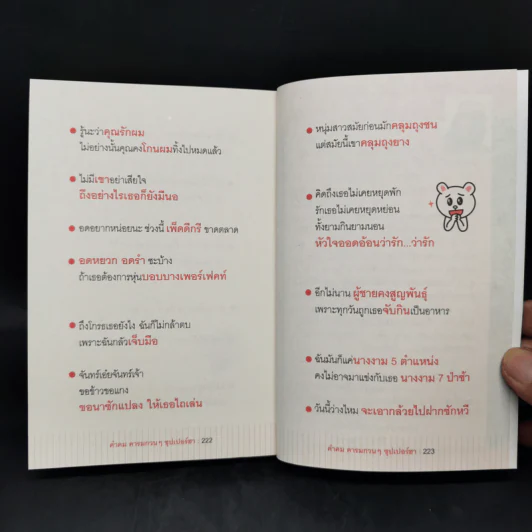 รู้นะว่าคุณรักผม
ไม่อย่างนั้นคุณคงโกนผมทิ้งไปหมดแล้ว
ไม่มีเขาอย่าเสียใจ
ถึงอย่างไรเธอก็ยังมีนอ
อดอยากหน่อยนะ ช่วงนี้ เพ็ดดีกรี ขาดตลาด
อดหยวก อดรำ ซะบ้าง
ถ้าเธอต้องการหุ่นบอบบางเพอร์เฟคท์
ถึงโกรธเธอยังไง ฉันก็ไม่กล้าตบ
เพราะฉันกลัวเจ็บมือ
จันทร์เอ๋ยจันทร์เจ้า
ขอข้าวขอแกง
ขอนาซักแปลง ให้เธอไถเล่น
คำคม คารมกวนๆ ซุปเปอร์ฮา 222
หนุ่มสาวสมัยก่อนมักคลุมถุงชน
แต่สมัยนี้เขาคลุมถุงยาง
คิดถึงเธอไม่เคยหยุดพัก
รักเธอไม่เคยหยุดหย่อน
ทั้งยามกินยามนอน
หัวใจออดอ้อนว่ารัก...ว่ารัก
อีกไม่นาน ผู้ชายคงสูญพันธุ์
เพราะทุกวันถูกเธอจับกินเป็นอาหาร
ฉันมันก็แค่นางงาม 5 ตำแหน่ง
คงไม่อาจมาแข่งกับเธอ นางงาม 7 ป่าช้า
วันนี้ว่างไหม จะเอากล้วยไปฝากซักหวี
คำคม คารมกวนๆ ซุปเปอร์ฮา 223